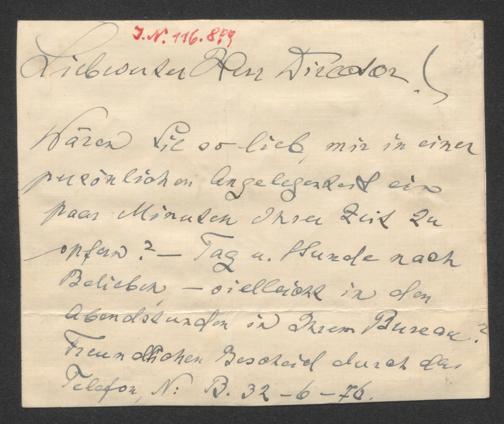 J.N. 116.879
Liebwerter Herr Director!
Wären Sie so lieb, mir in einer
persönlichen Angelegenheit ein
paar Minuten Ihrer Zeit zu
opfern? – Tag u. Stunde nach
Belieben, – vielleicht in den
Abendstunden in Ihrem Bureau?
Freundlichen Bescheid durch das
Telefon, N: B. 32–6–76.